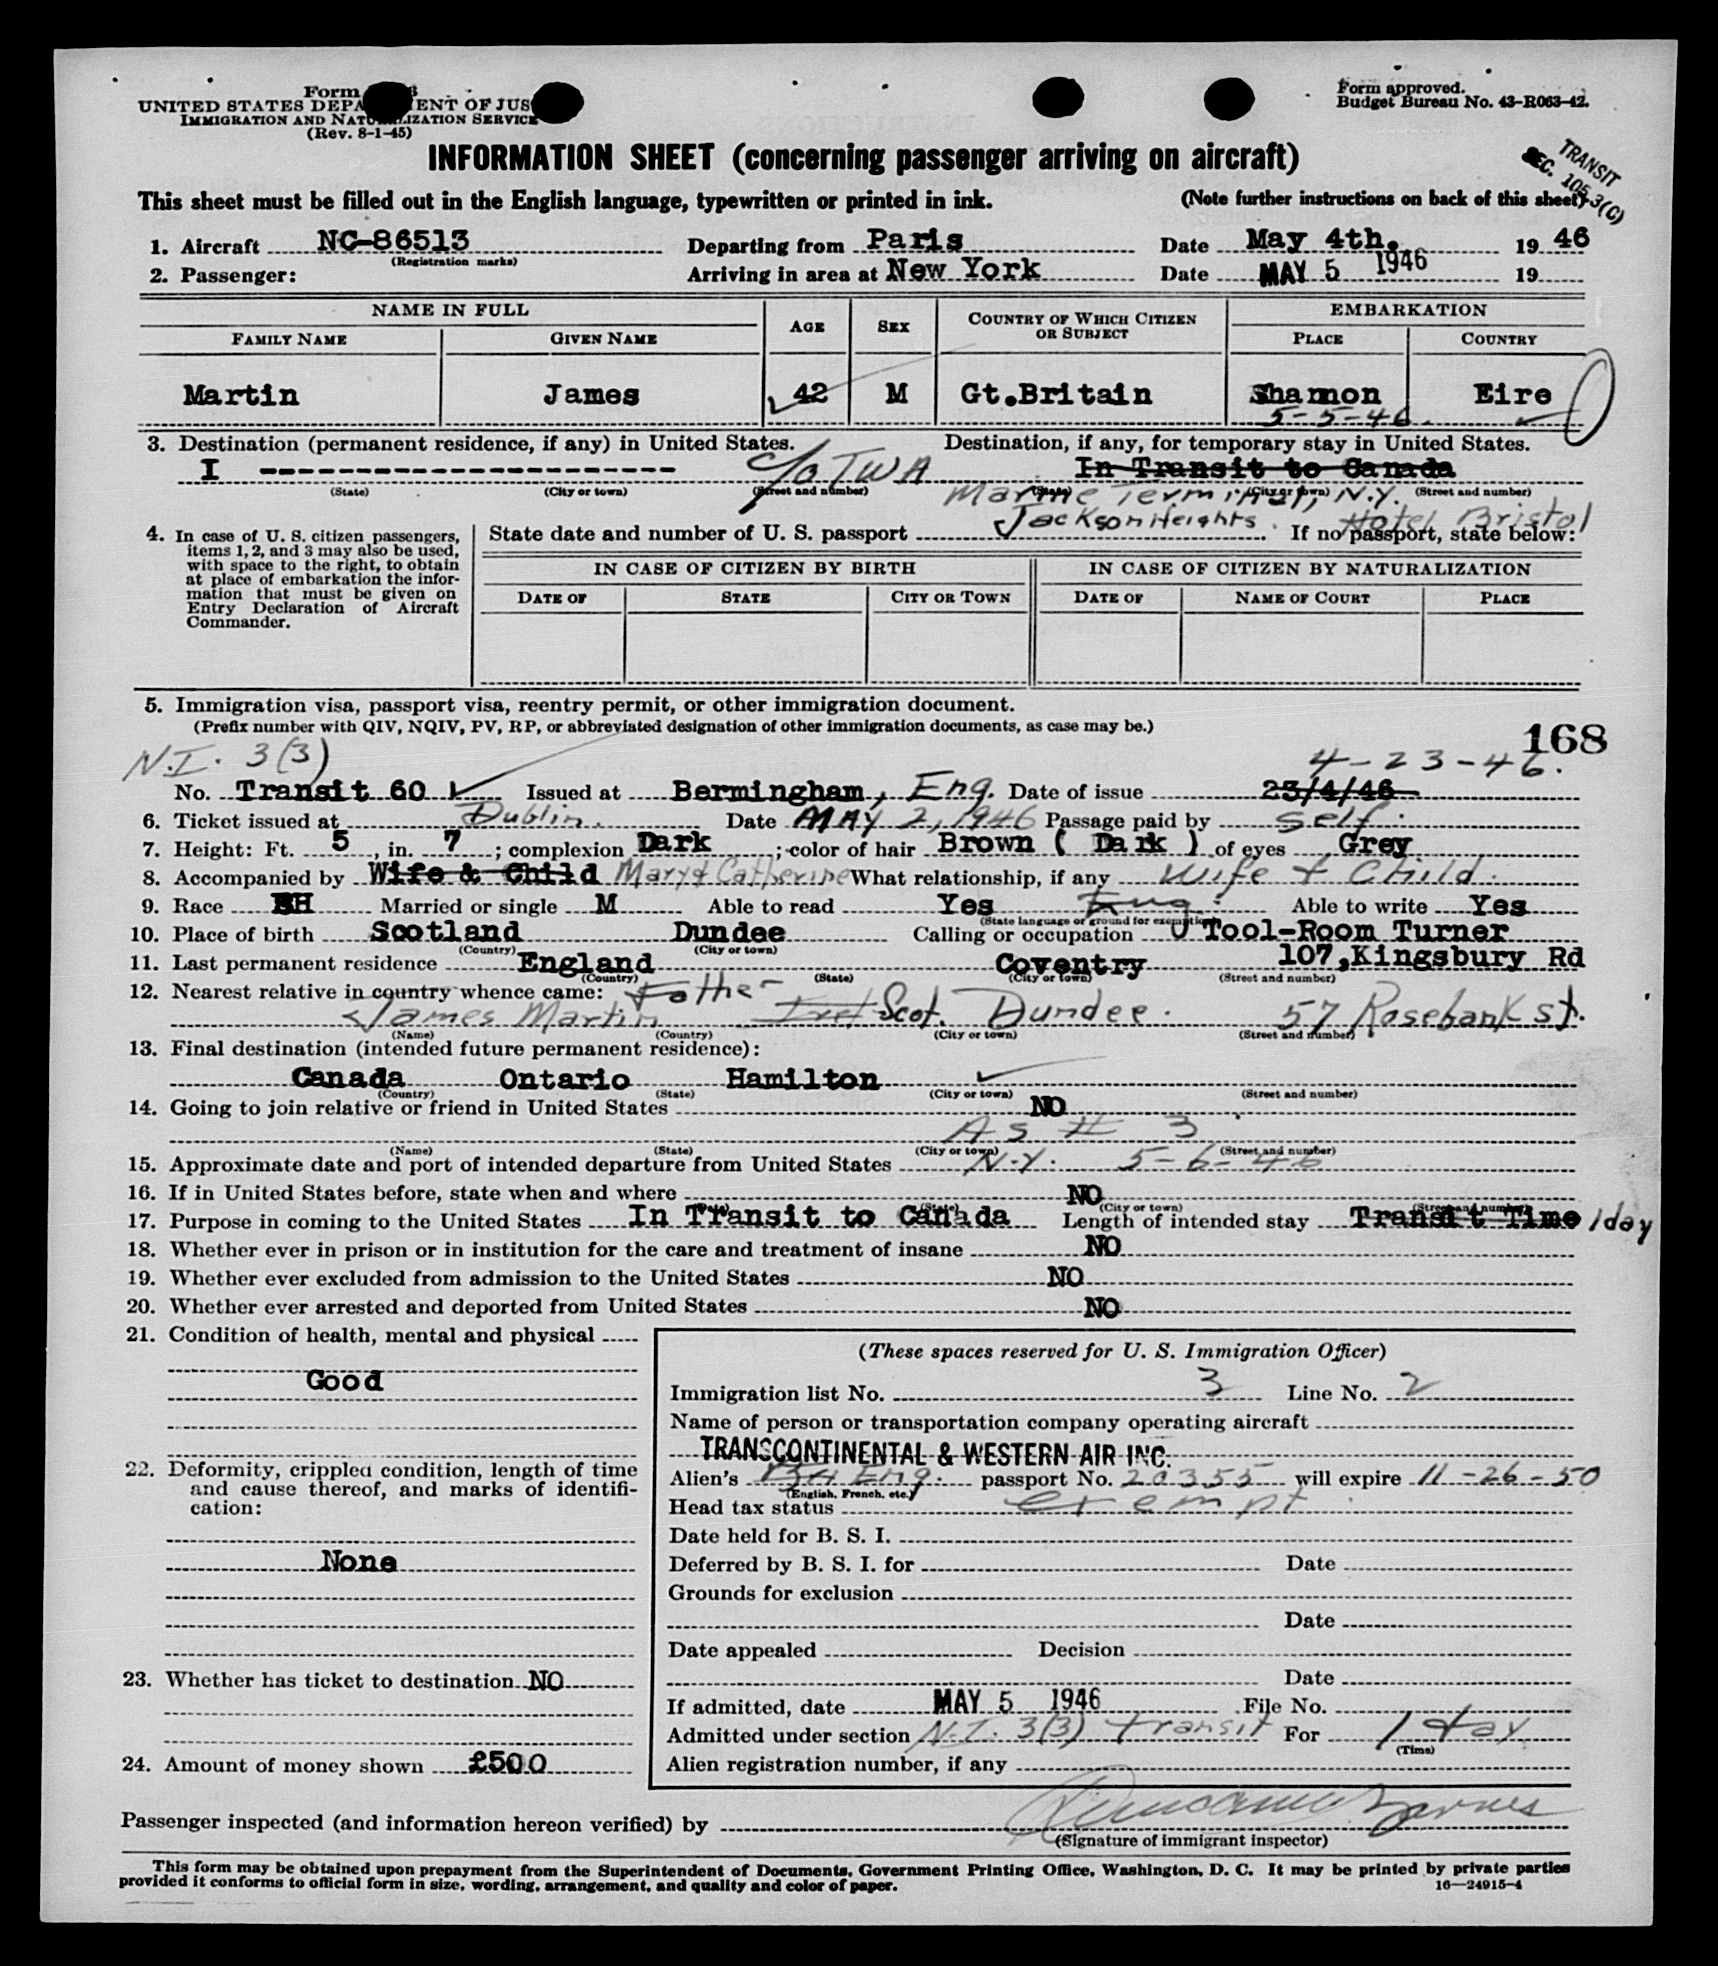 Form
UNITED STATES DEPA ENT OF JUS
IMMIGRATION AND NATURALIZATION SERVICE
(Rev. 8-1-45)
Form approved.
Budget Bureau No. 43-R063-42.
INFORMATION SHEET (concerning passenger arriving on aircraft)
TRANSIT
SEC. 105.3(C)
This sheet must be filled out in the English language, typewritten or printed in ink. (Note further instructions on back of this sheet)
1. Aircraft NC-86513 Departing from Paris Date May 4th. 19 46
(Registration marks)
2. Passenger: Arriving in area at New York Date MAY 5 1946 19
NAME IN FULL AGE SEX COUNTRY OF WHICH CITIZEN OR SUBJECT EMBARKATION
FAMILY NAME GIVEN NAME PLACE COUNTRY
Martin James 42 M Gt.Britain Shannon Eire
5-5-46.
3. Destination (permanent residence, if any) in United States. Destination, if any, for temporary stay in United States.
I ------------------------ c/o TWA In Transit to Canada
(State) (City or town) (Street and number) (State) (City or town) (Street and number)
Marine Terminal, N.Y.
Jackson Heights. Hotel Bristol
4. In case of U. S. citizen passengers, items 1, 2, and 3 may also be used, with space to the right, to obtain at place of embarkation the information that must be given on Entry Declaration of Aircraft Commander.
State date and number of U. S. passport If no passport, state below:
IN CASE OF CITIZEN BY BIRTH IN CASE OF CITIZEN BY NATURALIZATION
DATE OF STATE CITY OR TOWN DATE OF NAME OF COURT PLACE
5. Immigration visa, passport visa, reentry permit, or other immigration document.
(Prefix number with QIV, NQIV, PV, RP, or abbreviated designation of other immigration documents, as case may be.)
168
N.I. 3(3) 4-23-46.
No. Transit 60 Issued at Bermingham, Eng. Date of issue 23/4/46
6. Ticket issued at Dublin. Date MAY 2, 1946 Passage paid by Self.
7. Height: Ft. 5, in. 7; complexion Dark; color of hair Brown ( Dark ) of eyes Grey
8. Accompanied by Wife & Child Mary & Catherine What relationship, if any Wife & Child.
9. Race SH Married or single M Able to read Yes Eng. Able to write Yes
(State language or ground for exemption)
10. Place of birth Scotland Dundee Calling or occupation Tool-Room Turner
(Country) (City or town)
11. Last permanent residence England Coventry 107,Kingsbury Rd
(Country) (State) (City or town) (Street and number)
12. Nearest relative in country whence came: Father -
James Martin Scot. Dundee. 57 Rosebank St.
(Name) (Country) (City or town) (Street and number)
13. Final destination (intended future permanent residence):
Canada Ontario Hamilton
(Country) (State) (City or town) (Street and number)
14. Going to join relative or friend in United States NO
As # 3
(Name) (State) (City or town) (Street and number)
15. Approximate date and port of intended departure from United States N.Y. 5-6-46
16. If in United States before, state when and where NO
(State) (City or town) (Street and number)
17. Purpose in coming to the United States In Transit to Canada Length of intended stay Transit Time 1day
18. Whether ever in prison or in institution for the care and treatment of insane NO
19. Whether ever excluded from admission to the United States NO
20. Whether ever arrested and deported from United States NO
21. Condition of health, mental and physical
Good
22. Deformity, crippled condition, length of time and cause thereof, and marks of identification:
None
23. Whether has ticket to destination NO
24. Amount of money shown £500
(These spaces reserved for U. S. Immigration Officer)
Immigration list No. 3 Line No. 2
Name of person or transportation company operating aircraft
TRANSCONTINENTAL & WESTERN AIR INC.
Alien's Eng. passport No. 20355 will expire 11-26-50
(English, French, etc.)
Head tax status exempt
Date held for B. S. I.
Deferred by B. S. I. for Date
Grounds for exclusion
Date
Date appealed Decision
Date
If admitted, date MAY 5 1946 File No.
Admitted under section N.I. 3(3) transit For 1 day
(Time)
Alien registration number, if any
Passenger inspected (and information hereon verified) by
(Signature of immigrant inspector)
This form may be obtained upon prepayment from the Superintendent of Documents, Government Printing Office, Washington, D. C. It may be printed by private parties
provided it conforms to official form in size, wording, arrangement, and quality and color of paper.
16—24915-4